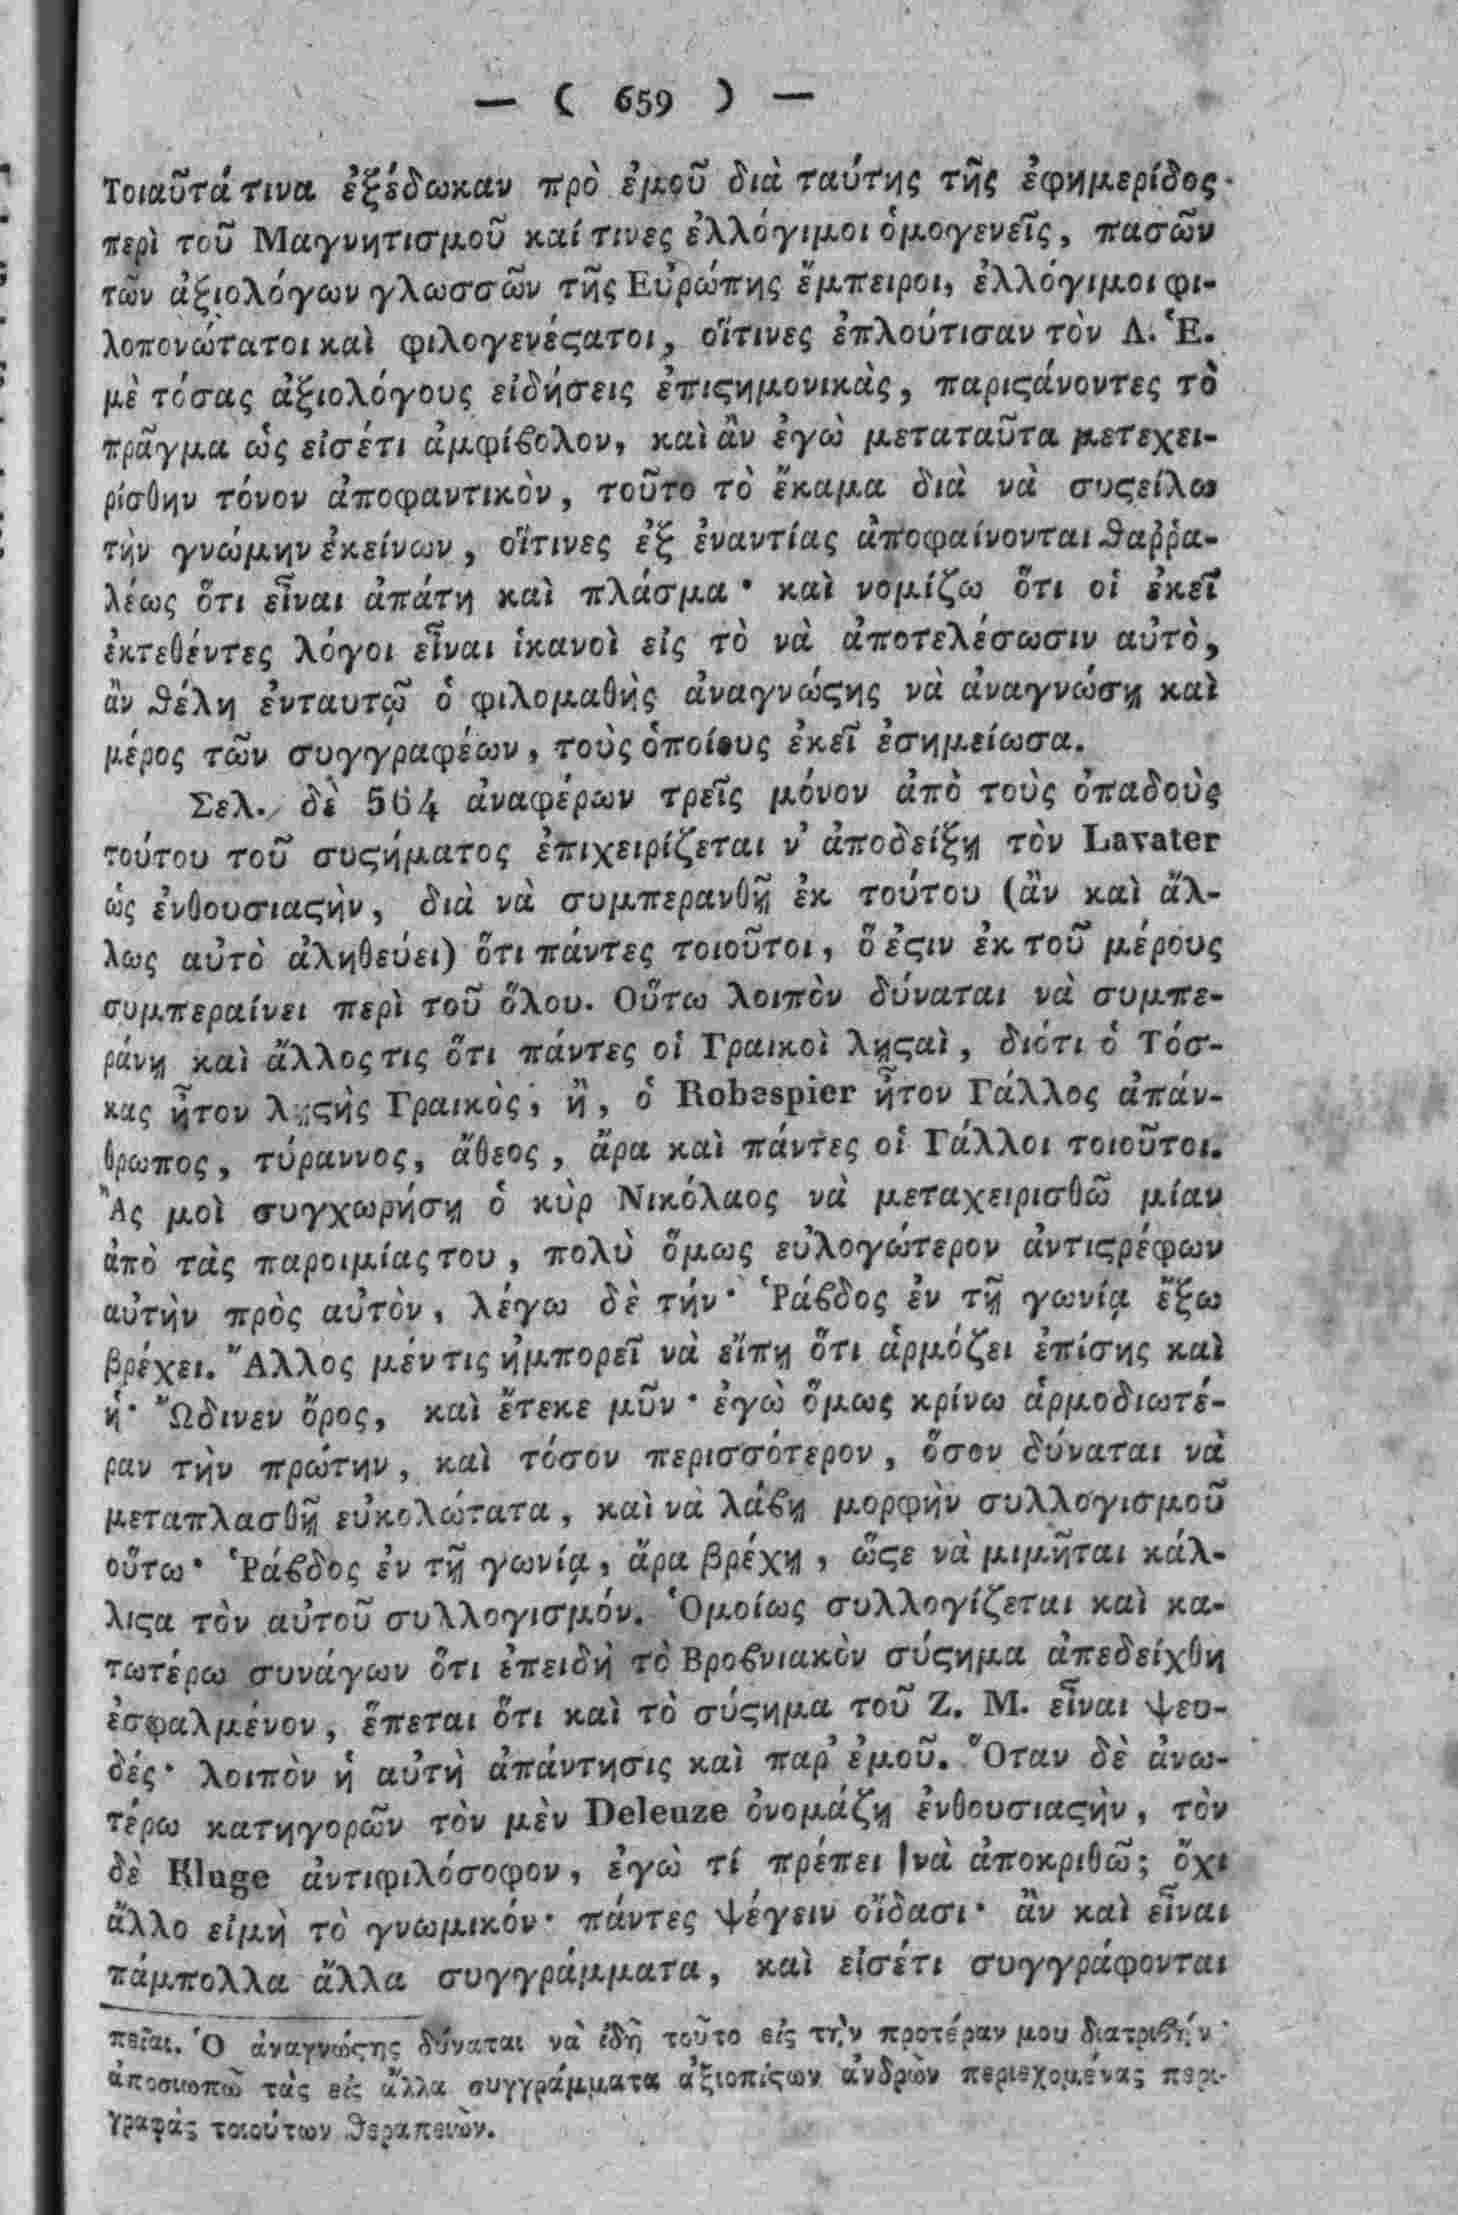 — ( 659 ) —
Τοιαῦτά τινα ἐξέδωκαν πρὸ ἐμοῦ διὰ ταύτης τῆς ἐφημερίδος
περὶ τοῦ Μαγνητισμοῦ καί τινες ἐλλόγιμοι ὁμογενεῖς, πασῶν
τῶν ἀξιολόγων γλωσσῶν τῆς Εὐρώπης ἔμπειροι, ἐλλόγιμοι φι-
λοπονώτατοι καὶ φιλογενέϛατοι, οἵτινες ἐπλούτισαν τὸν Λ. Ἑ.
μὲ τόσας ἀξιολόγους εἰδήσεις ἐπιϛημονικὰς, παριϛάνοντες τὸ
πρᾶγμα ὡς εἰσέτι ἀμφίϐολον, καὶ ἂν ἐγὼ μεταταῦτα μετεχει-
ρίσθην τόνον ἀποφαντικὸν, τοῦτο τὸ ἔκαμα διὰ νὰ συϛείλω
τὴν γνώμην ἐκείνων, οἵτινες ἐξ ἐναντίας ἀποφαίνονται ϑαῤῥα-
λέως ὅτι εἶναι ἀπάτη καὶ πλάσμα· καὶ νομίζω ὅτι οἱ ἐκεῖ
ἐκτεθέντες λόγοι εἶναι ἱκανοὶ εἰς τὸ νὰ ἀποτελέσωσιν αὐτὸ,
ἂν ϑέλη ἐνταυτῷ ὁ φιλομαθὴς ἀναγνώϛης νὰ ἀναγνώσῃ καὶ
μέρος τῶν συγγραφέων, τοὺς ὁποίους ἐκεῖ ἐσημείωσα.
Σελ. δὲ 564 ἀναφέρων τρεῖς μόνον ἀπὸ τοὺς ὀπαδοὺς
τούτου τοῦ συϛήματος ἐπιχειρίζεται ν' ἀποδείξῃ τὸν Lavater
ὡς ἐνθουσιαϛὴν, διὰ νὰ συμπερανθῇ ἐκ τούτου (ἂν καὶ ἄλ-
λως αὐτὸ ἀληθεύει) ὅτι πάντες τοιοῦτοι, ὅ ἐϛιν ἐκ τοῦ μέρους
συμπεραίνει περὶ τοῦ ὅλου. Οὕτω λοιπὸν δύναται νὰ συμπε-
ράνῃ καὶ ἄλλος τις ὅτι πάντες οἱ Γραικοὶ λῃϛαὶ, διότι ὁ Τόσ-
κας ἦτον λῃϛὴς Γραικὸς; ἢ, ὁ Robespier ἦτον Γάλλος ἀπάν-
θρωπος, τύραννος, ἄθεος, ἄρα καὶ πάντες οἱ Γάλλοι τοιοῦτοι.
Ἂς μοὶ συγχωρήσῃ ὁ κὺρ Νικόλαος νὰ μεταχειρισθῶ μίαν
ἀπὸ τὰς παροιμίας του, πολὺ ὅμως εὐλογώτερον ἀντιϛρέφων
αὐτὴν πρὸς αὐτὸν, λέγω δὲ τήν· Ῥάϐδος ἐν τῇ γωνίᾳ ἔξω
βρέχει. Ἄλλος μέν τις ἠμπορεῖ νὰ εἴπῃ ὅτι ἁρμόζει ἐπίσης καὶ
ἡ· Ὤδινεν ὄρος, καὶ ἔτεκε μῦν· ἐγὼ ὅμως κρίνω ἁρμοδιωτέ-
ραν τὴν πρώτην, καὶ τόσον περισσότερον, ὅσον δύναται νὰ
μεταπλασθῇ εὐκολώτατα, καὶ νὰ λάϐῃ μορφὴν συλλογισμοῦ
οὕτω· Ῥάϐδος ἐν τῇ γωνίᾳ, ἄρα βρέχῃ, ὥϛε νὰ μιμῆται κάλ-
λιϛα τὸν αὐτοῦ συλλογισμόν. Ὁμοίως συλλογίζεται καὶ κα-
τωτέρω συνάγων ὅτι ἐπειδὴ τὸ Βροϐνιακὸν σύϛημα ἀπεδείχθη
ἐσφαλμένον, ἕπεται ὅτι καὶ τὸ σύϛημα τοῦ Ζ. Μ. εἶναι ψευ-
δές· λοιπὸν ἡ αὐτὴ ἀπάντησις καὶ παρ' ἐμοῦ. Ὅταν δὲ ἀνω-
τέρω κατηγορῶν τὸν μὲν Deleuze ὀνομάζῃ ἐνθουσιαϛὴν, τὸν
δὲ Kluge ἀντιφιλόσοφον, ἐγὼ τί πρέπει νὰ ἀποκριθῶ; ὄχι
ἄλλο εἰμὴ τὸ γνωμικόν· πάντες ψέγειν οἴδασι· ἂν καὶ εἶναι
πάμπολλα ἄλλα συγγράμματα, καὶ εἰσέτι συγγράφονται
πεῖαι. Ὁ ἀναγνώϛης δύναται νὰ ἰδῇ τοῦτο εἰς τὴν προτέραν μου διατριϐήν·
ἀποσιωπῶ τὰς εἰς ἄλλα συγγράμματα ἀξιοπίϛων ἀνδρῶν περιεχομένας περι-
γραφὰς τοιούτων ϑεραπειῶν.